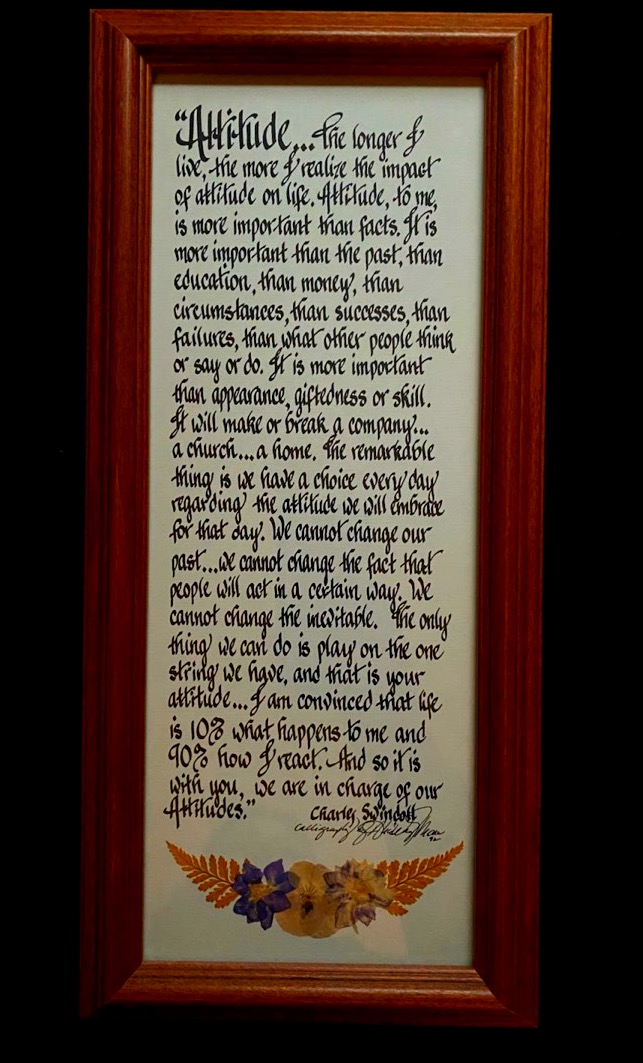 “Attitude... The longer I
live, the more I realize the impact
of attitude on life. Attitude, to me,
is more important than facts. It is
more important than the past, than
education, than money, than
circumstances, than successes, than
failures, than what other people think
or say or do. It is more important
than appearance, giftedness or skill.
It will make or break a company...
a church... a home. The remarkable
thing is we have a choice every day
regarding the attitude we will embrace
for that day. We cannot change our
past... we cannot change the fact that
people will act in a certain way. We
cannot change the inevitable. The only
thing we can do is play on the one
string we have, and that is your
attitude... I am convinced that life
is 10% what happens to me and
90% how I react. And so it is
with you, we are in charge of our
Attitudes.”
Charles Swindoll
Calligraphy by